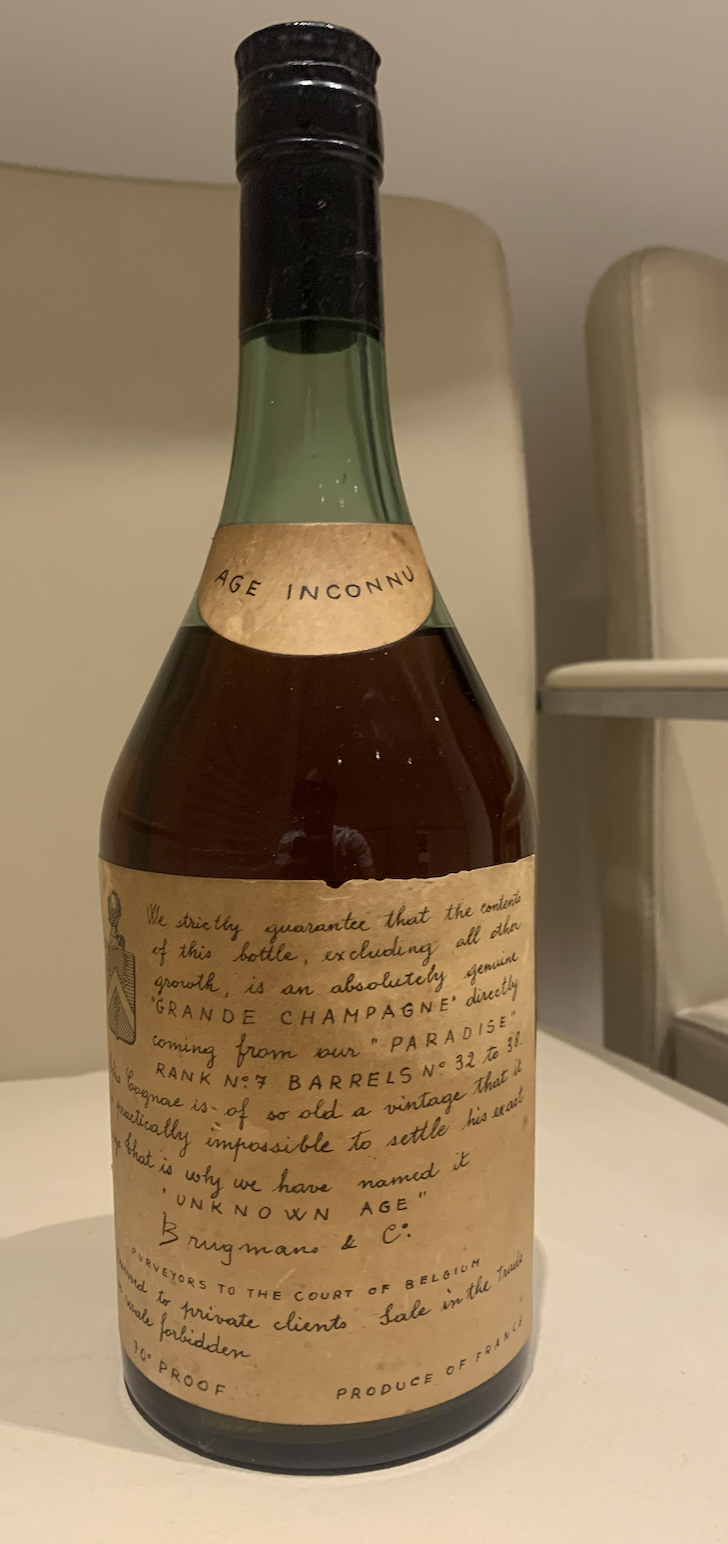 AGE INCONNU
We strictly guarantee that the contents
of this bottle, excluding all other
growth, is an absolutely genuine
"GRANDE CHAMPAGNE" directly
coming from our "PARADISE"
RANK Nº 7 BARRELS Nº 32 to 38.
Cognac is of so old a vintage that it
practically impossible to settle his exact
that is why we have named it
"UNKNOWN AGE"
Brugmans & Cº
PURVEYORS TO THE COURT OF BELGIUM
to private clients. Sale in the Trade
forbidden
70° PROOF
PRODUCE OF FRANCE